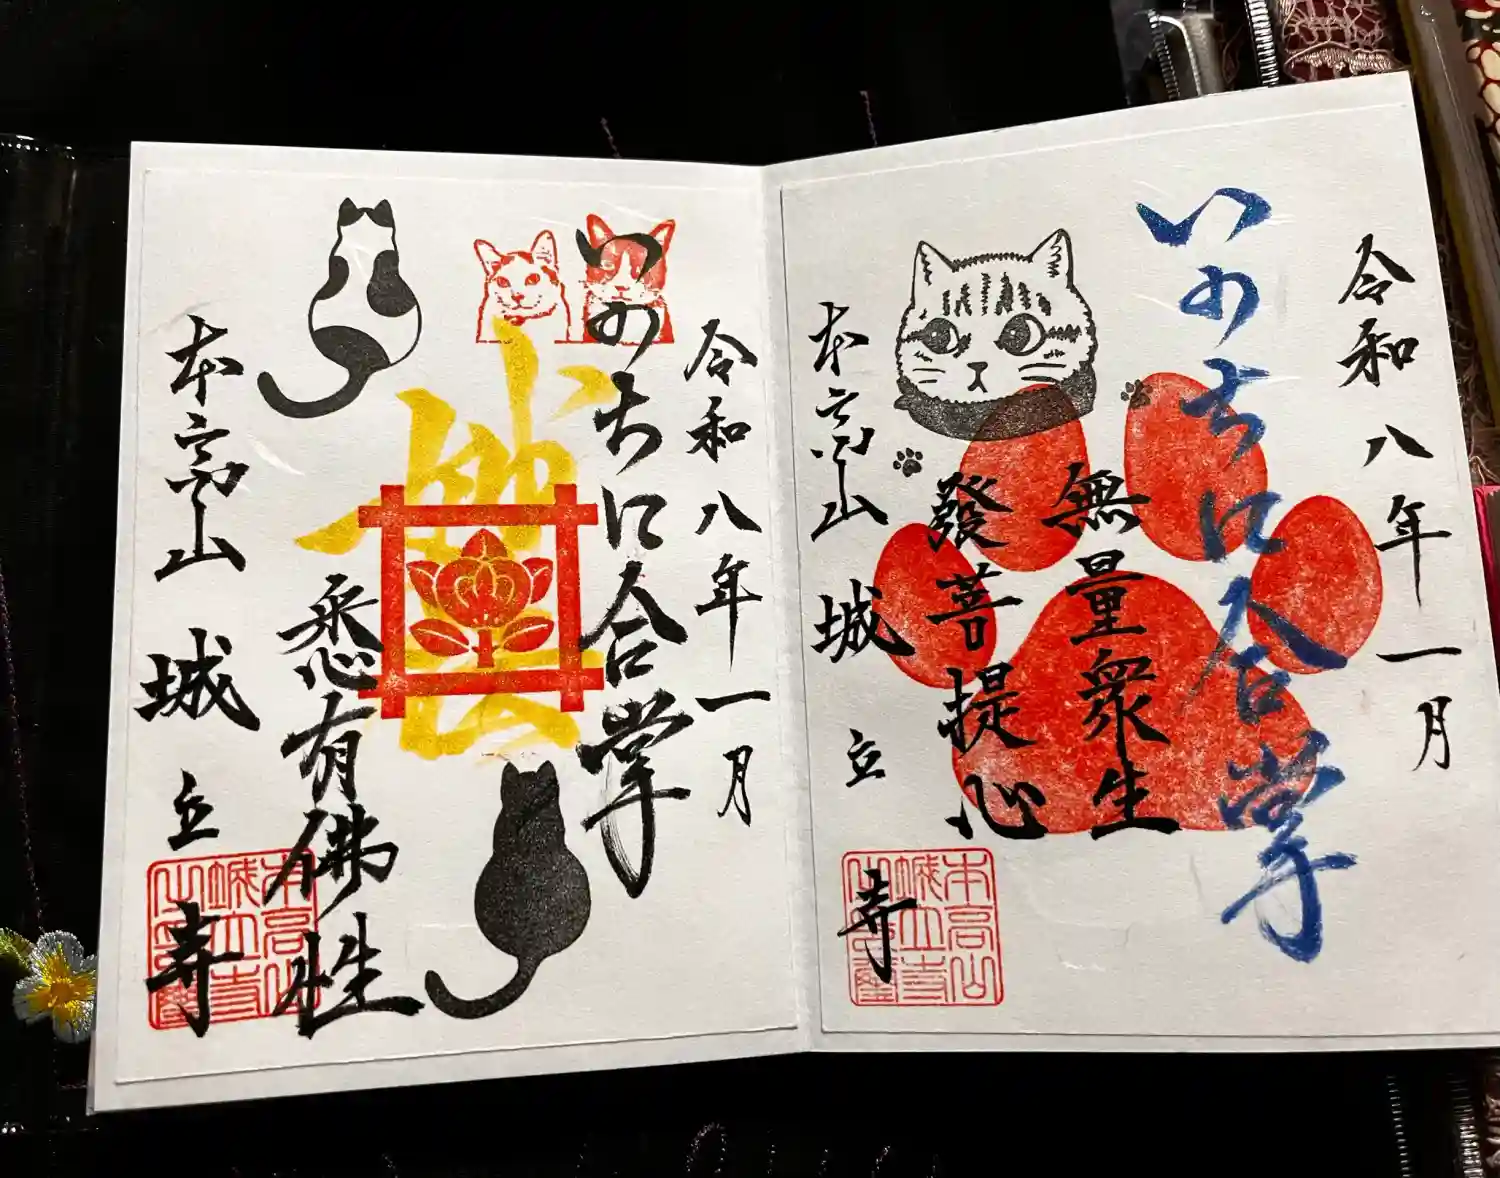 令和八年一月
いのちに合掌
無量衆生
發菩提心
本高山 城立寺
本高山城立寺
令和八年一月
いのちに合掌
悉有佛性
本高山 城立寺
本高山城立寺